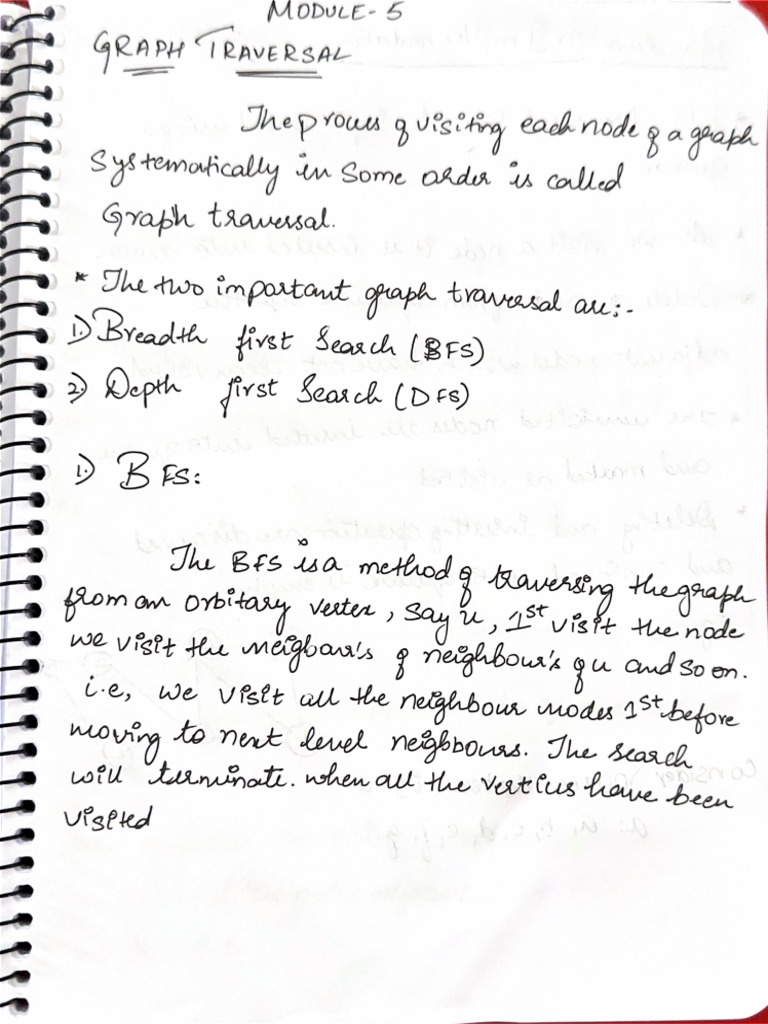 MODULE-5
GRAPH TRAVERSAL
The process of visiting each node of a graph
Systematically in Some order is called
Graph traversal.
* The two important graph traversal are:-
1) Breadth first Search (BFS)
2) Depth first Search (DFS)
1) BFS:
The BFS is a method of traversing the graph
from an orbitary vertex, say u, 1st visit the node
we visit the neigbour's of neighbour's of u and so on.
i.e, we visit all the neighbour nodes 1st before
moving to next level neighbours. The search
will terminate. when all the vertices have been
visited